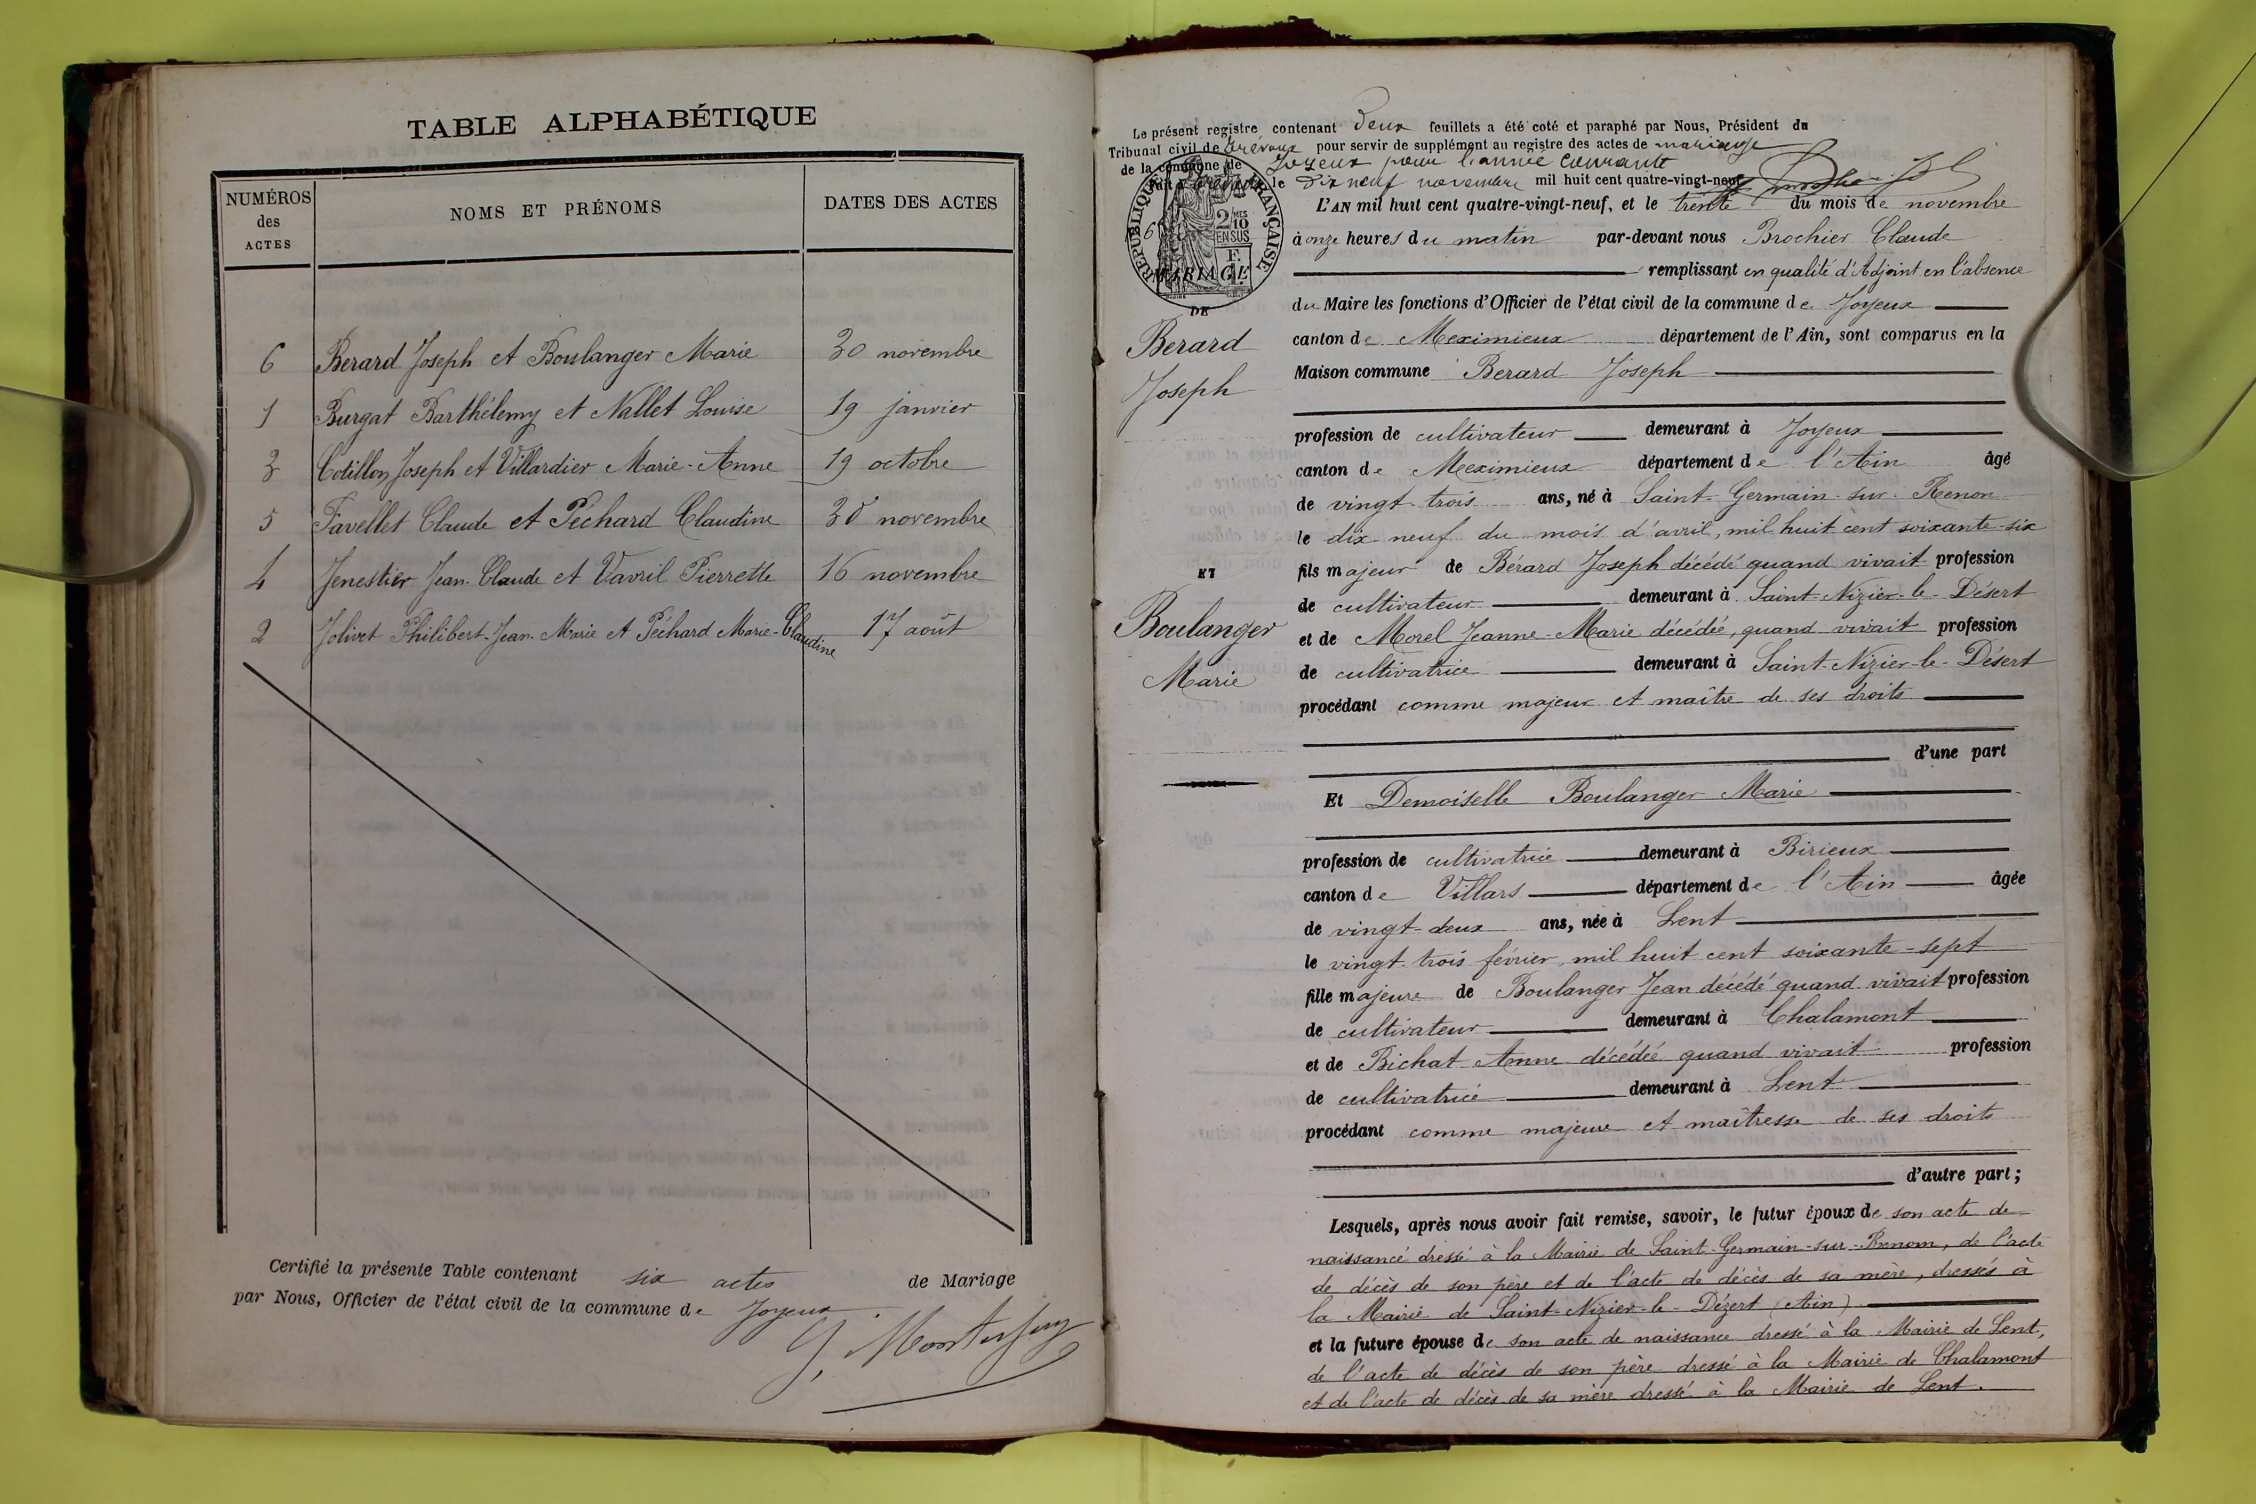 TABLE ALPHABÉTIQUE
NUMÉROS des ACTES
NOMS ET PRÉNOMS
DATES DES ACTES
6 Berard Joseph et Boulanger Marie 30 novembre
1 Burgat Barthélemy et Nallet Louise 19 janvier
3 Cotillon Joseph et Villardier Marie-Anne 19 octobre
5 Favellet Claude et Péchard Claudine 30 novembre
4 Jenestier Jean-Claude et Vavril Pierrette 16 novembre
2 Jolivet Philibert-Jean-Marie et Péchard Marie-Claudine 17 août
Certifié la présente Table contenant six actes de Mariage
par Nous, Officier de l'état civil de la commune de Joyeux.
Le présent registre contenant Deux feuillets a été coté et paraphé par Nous, Président du
Tribunal civil de Trévoux pour servir de supplément au registre des actes de mariage
de la commune de Joyeux pour l'année courante
Fait à Trévoux le Dix neuf novembre mil huit cent quatre-vingt-neuf
RÉPUBLIQUE FRANÇAISE
2/10 MES
EN SUS
6
MARIAGE
DE
Berard
Joseph
ET
Boulanger
Marie
L'AN mil huit cent quatre-vingt-neuf, et le trente du mois de novembre
à onze heures du matin par-devant nous Brochier Claude
remplissant en qualité d'Adjoint en l'absence
du Maire les fonctions d'Officier de l'état civil de la commune de Joyeux
canton de Meximieux département de l'Ain, sont comparus en la
Maison commune Berard Joseph
profession de cultivateur demeurant à Joyeux
canton de Meximieux département de l'Ain âgé
de vingt-trois ans, né à Saint-Germain-sur-Renon
le dix-neuf du mois d'avril, mil huit cent soixante-six
fils majeur de Bérard Joseph décédé quand vivait profession
de cultivateur demeurant à Saint-Nizier-le-Désert
et de Morel Jeanne-Marie décédée, quand vivait profession
de cultivatrice demeurant à Saint-Nizier-le-Désert
procédant comme majeur et maître de ses droits
d'une part
Et Demoiselle Boulanger Marie
profession de cultivatrice demeurant à Birieux
canton de Villars département de l'Ain âgée
de vingt-deux ans, née à Lent
le vingt-trois février mil huit cent soixante-sept
fille majeure de Boulanger Jean décédé quand vivait profession
de cultivateur demeurant à Chalamont
et de Bichat Anne décédée quand vivait profession
de cultivatrice demeurant à Lent
procédant comme majeure et maîtresse de ses droits
d'autre part;
Lesquels, après nous avoir fait remise, savoir, le futur époux de son acte de
naissance dressé à la Mairie de Saint-Germain-sur-Renom, de l'acte
de décès de son père et de l'acte de décès de sa mère, dressés à
la Mairie de Saint-Nizier-le-Dézert (Ain)
et la future épouse de son acte de naissance dressé à la Mairie de Lent,
de l'acte de décès de son père dressé à la Mairie de Chalamont
et de l'acte de décès de sa mère dressé à la Mairie de Lent.